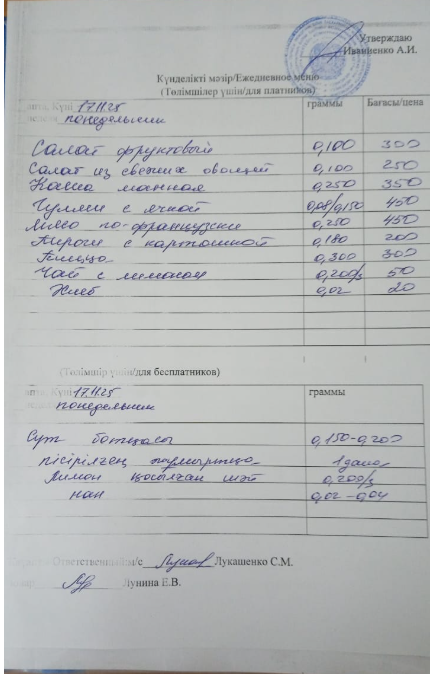 Утверждаю
Иваниенко А.И.
Күнделікті мәзір/Ежедневное меню
(Төлімшілер үшін/для платников)
Күні 17.11.25 граммы Бағасы/цена
понедельник
Салат фруктовый 0,100 300
Салат из свежих овощей 0,100 250
Каша манная 0,250 350
Гуляш с 0,08/0,150 450
Мясо по-французски 0,250 450
Пироги с картошкой 0,180 200
Пицца 0,300 300
Чай с лимоном 0,200/5 50
Хлеб 0,02 20
(Төлімшір үшін/для бесплатников)
Күні 17.11.25 граммы
понедельник
Сүт ботқасы 0,150-0,200
пісірілген жұмыртқа 1 дана
Лимон қосылған шәй 0,200/5
нан 0,02-0,04
Ответственный м/с Лукашенко С.М.
Лунина Е.В.